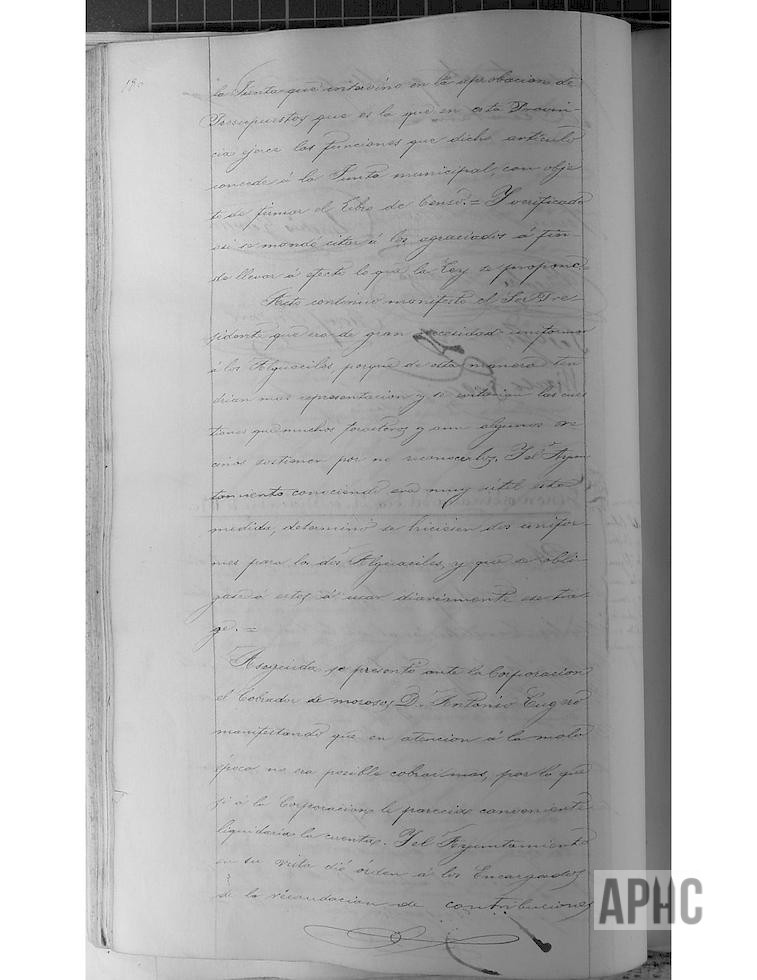 180
la Junta que intervino en la aprobacion de
Presupuestos que es la que en esta Provin-
cia ejerce las funciones que dicho articulo
concede á la Junta municipal, con obje
to de firmar el libro de Censo. = Y verificado
asi se mande citar á los agraciados á fin
de llevar á efecto lo que la Ley se propone.
Acto continuo manifestó el Sor Pre
sidente que era de gran necesidad uniformar
á los Alguaciles porque de esta manera ten
drian mas representacion y se evitarian las cues
tiones que muchos forasteros y aun algunos ve
cinos sostienen por no reconocerlos. Y el Ayun
tamiento conociendo era muy útil esta
medida, determinó se hiciesen dos unifor-
mes para los dos Alguaciles, y que se obli-
gase á estos á usar diariamente ese tra-
ge. =
Aseguida se presentó ante la Corporacion
el Cobrador de morosos D. Antonio
manifestando que en atencion á la mala
época no era posible cobrar mas, por lo que
si á la Corporacion le parecia conveniente
liquidaria la cuenta. Y el Ayuntamiento
en su vista dió órden á los Encargados
de la recaudacion de contribuciones
APHC